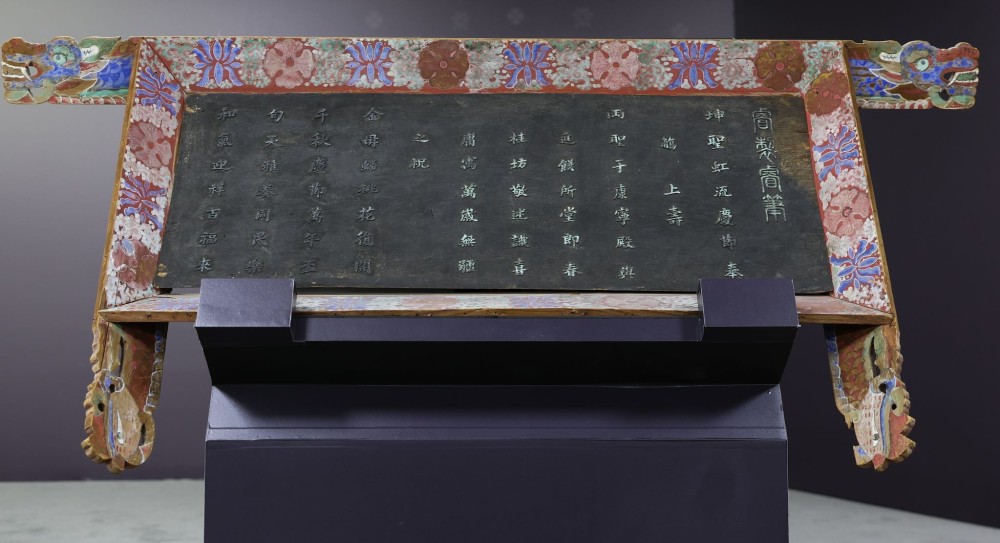 睿製睿筆
坤聖虹流慶節奉
觴上壽
兩聖于康寧殿與
進饌所堂即春
桂坊敬述識喜
庸寓萬歲無疆
之祝
金母蟠桃花開
千秋慶節萬年盃
勻天雅奏同民樂
和氣迎祥吉福來